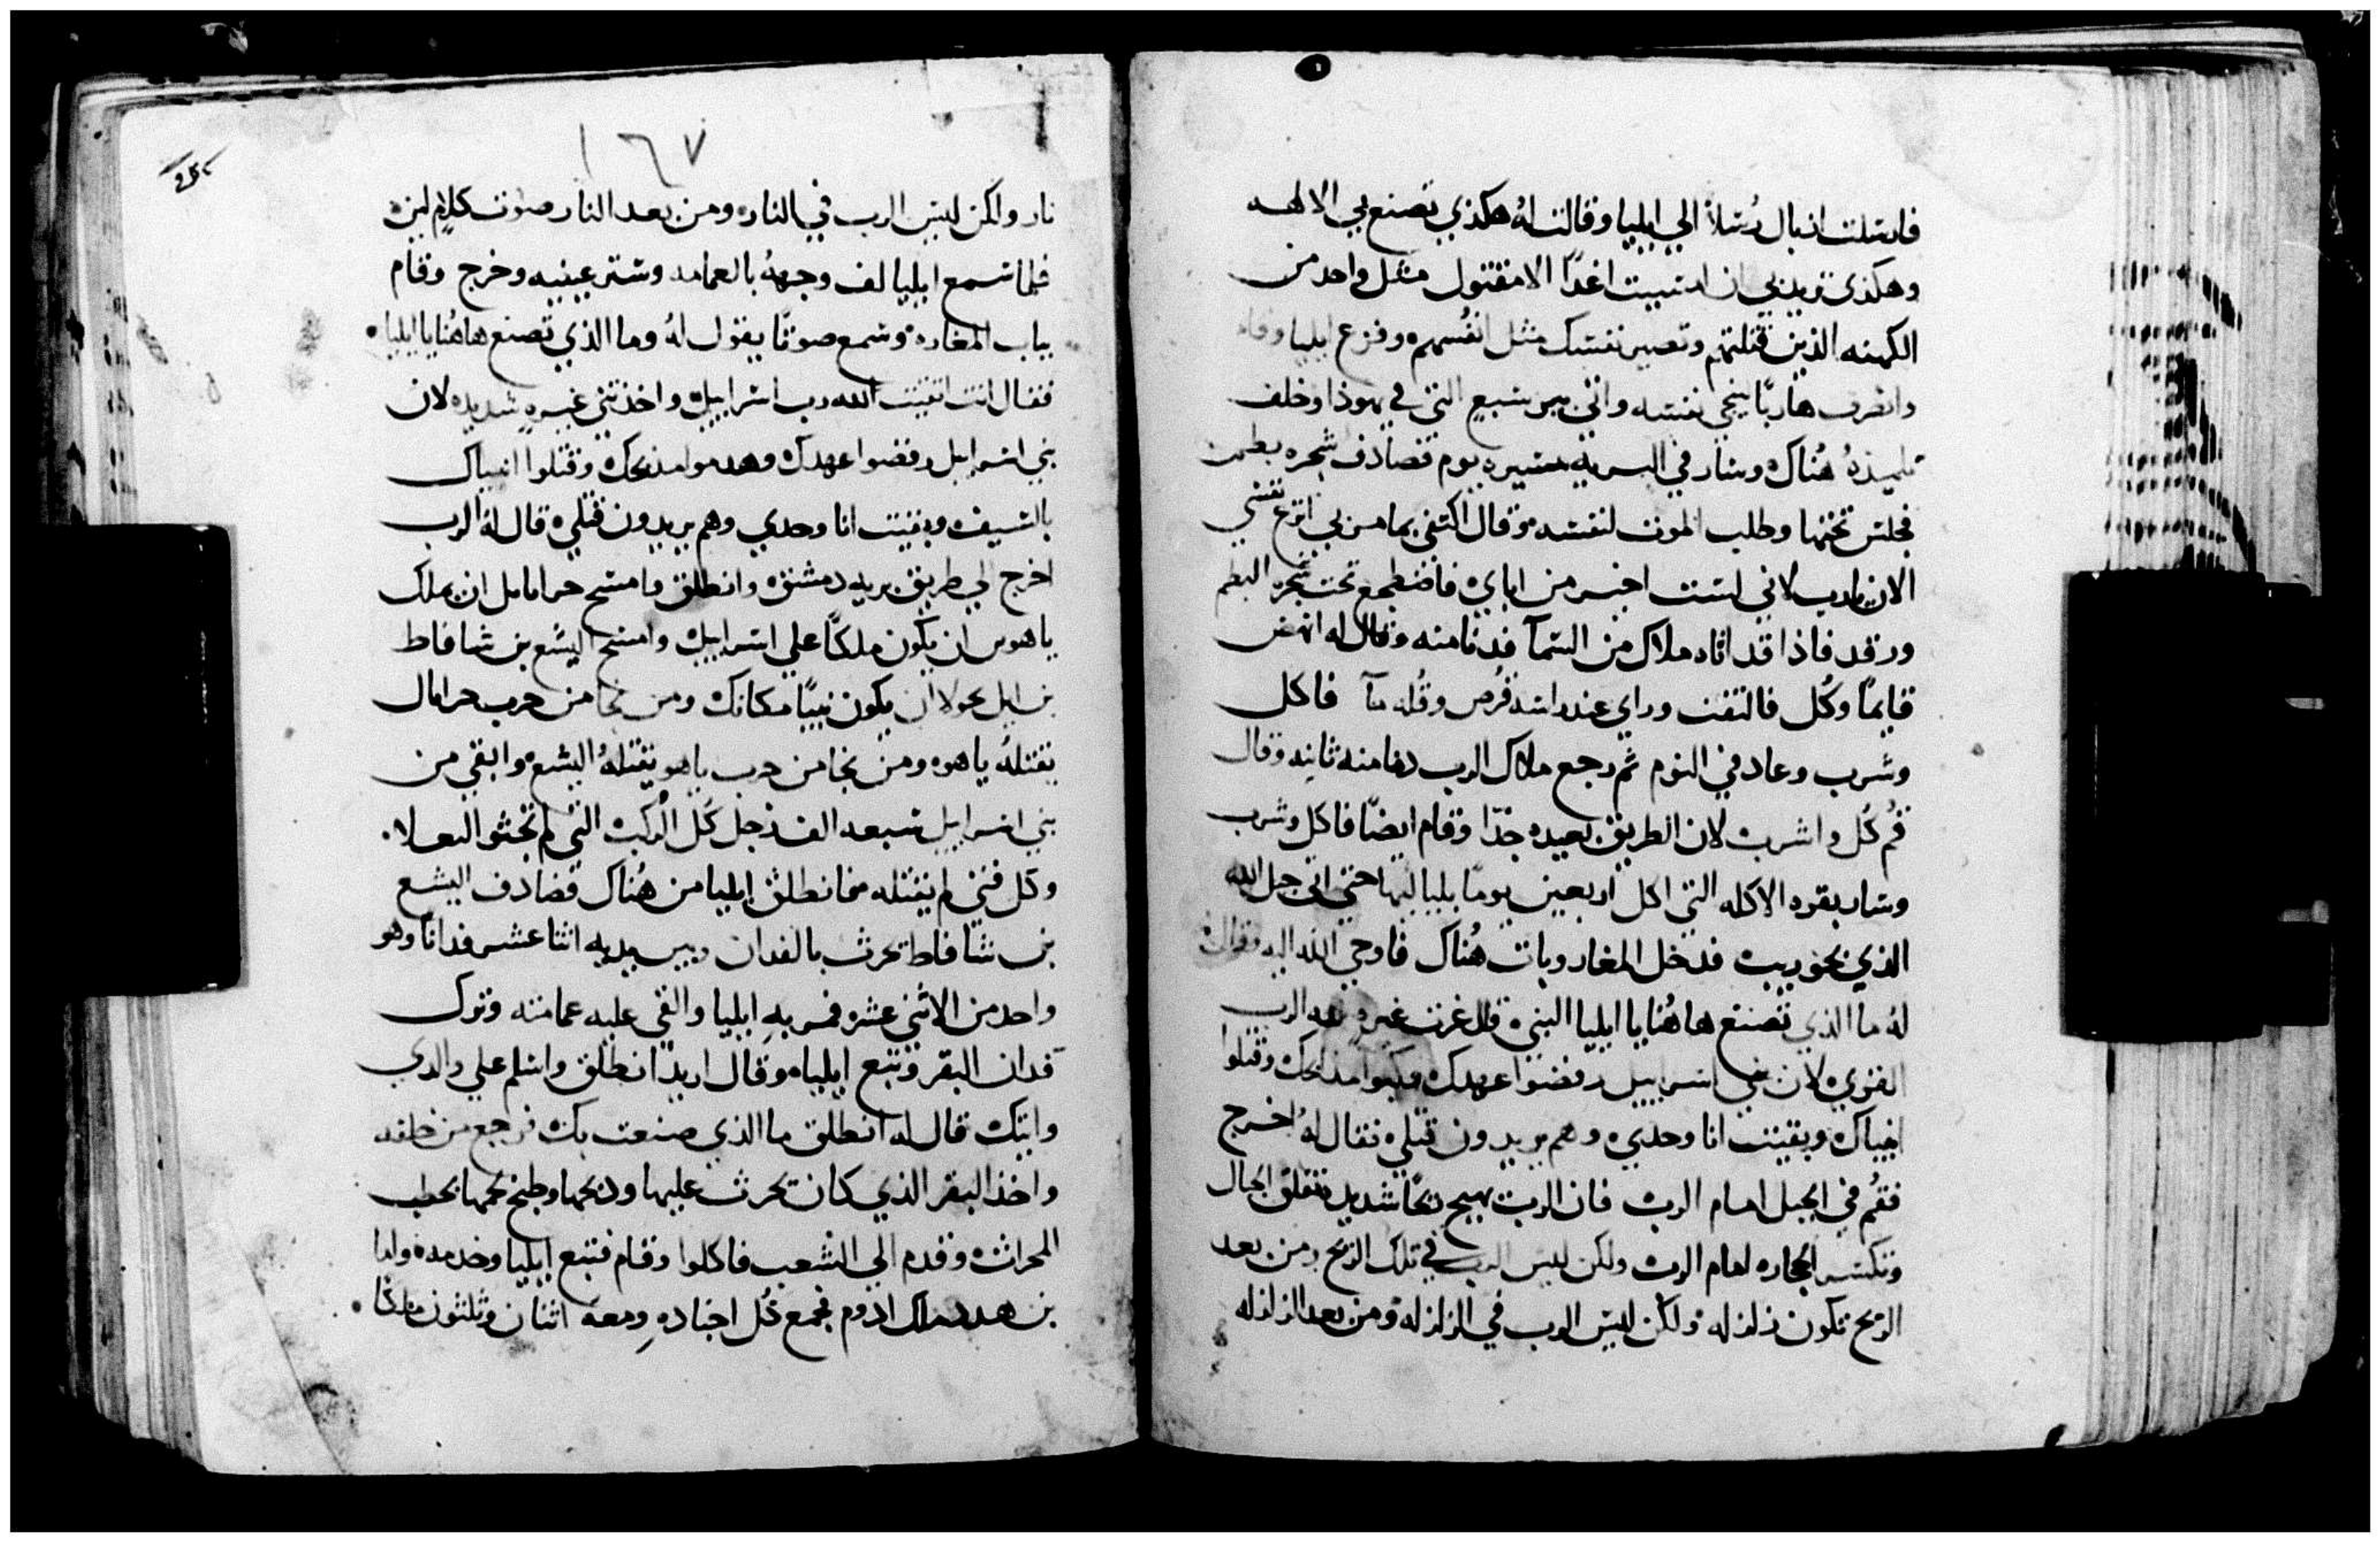 فارسلت ازبال رُسلاً الي ايليا وقالت لهُ هكذي تصنع بي الالهه
وهكذي تزيدني ان امسيت اغدًا الا مقتول مثل واحد من
الكهنه الذين قتلتهم وتصير نفسك مثل انفُسهم وفزع ايليا وقام
وانصرف هاربًا ينجي نفسه واتي بير سبع التي في يهوذا وخلف
تلميذهُ هُناك وسار في البريه مسيره يوم فصادف شجره بطمه
فجلس تحتها وطلب الموت لنفسه وقال اكتفي بما مر بي انزع نفسي
الان يا رب لاني لست اخير من اباي فاضطجع تحت شجره البطم
ورقد فاذا قد اتاه ملاك من السمآ فدنا منه وقال له انهض
قايمًا وكُل فالتفت وراي عند راسه قُرص وقُله مآ فاكل
وشرب وعاد في النوم ثم رجع ملاك الرب دفا منه ثانيه وقال
قُم كُل واشرب لان الطريق بعيده جدًا وقام ايضًا فاكل وشرب
وسار بقوه الاكله التي اكل اربعين يومًا بلياليها حتي اتي جبل الله
الذي بحوريب فدخل المغار وبات هُناك فاوحي الله اليه وقال
لهُ ما الذي تصنع هاهُنا يا ايليا النبي قال غرت غيره لله الرب
القوي لان بني اسراييل رفضوا عهدك وهدموا مذبحك وقتلوا
انبياك وبقيت انا وحدي وهم يريدون قتلي فقال لهُ اخرج
فقُم في الجبل امام الرب فان الرب يهيج ريحًا شديد تتفلق الجبال
وتكسر الحجاره امام الرب ولكن ليس الرب في تلك الريح ومن بعد
الريح تكون زلزله ولكن ليس الرب في الزلزله ومن بعد الزلزله
١٦٧
نار ولكن ليس الرب في النار ومن بعد النار صوت كلام لين
فلما سمع ايليا لف وجههُ بالعمامه وستر عينيه وخرج وقام
بباب المغاره وسمع صوتًا يقول لهُ وما الذي تصنع هاهُنا يا ايليا
فقال انت اتقيت الله رب اسراييل واخذتني غيره شديده لان
بني اسراييل رفضوا عهدك وهدموا مذبحك وقتلوا انبياك
بالسيف وبقيت انا وحدي وهم يريدون قتلي قال له الرب
اخرج الي طريق بريه دمشق وانطلق وامسح حرامامل ان يملك
ياهو ان يكون ملكًا علي اسراييل وامسح اليشع بن شافاط
بن ايل محولا ان يكون نبيًا مكانك ومن نجا من حرب حرامال
يقتلهُ ياهو ومن نجا من حرب ياهو يقتلهُ اليشع وابقي من
بني اسراييل سبعه الف رجل كُل الركب التي لم تجثوا لبعلا
وكل فتي لم يقتله فمًا نطلق ايليا من هُناك فصادف اليشع
بن شافاط يحرث بالفدان وبين يديه اثنا عشر فدانًا وهو
واحد من الاثني عشر فمر به ايليا والقي عليه عمامته وترك
فدان البقر وتبع ايليا وقال اريد انطلق واسلم علي والدي
واتيك قال له انطلق ما الذي صنعت بك فرجع من خلفه
واخذ البقر الذي كان يحرث عليها وذبحها وطبخ لحمها بحطب
المحراث وقدم الي الشعب فاكلوا وقام فتبع ايليا وخدمه واما
بن هدد ملك ادوم فجمع كُل اجناده ومعه اثنان وثلثون ملكًا